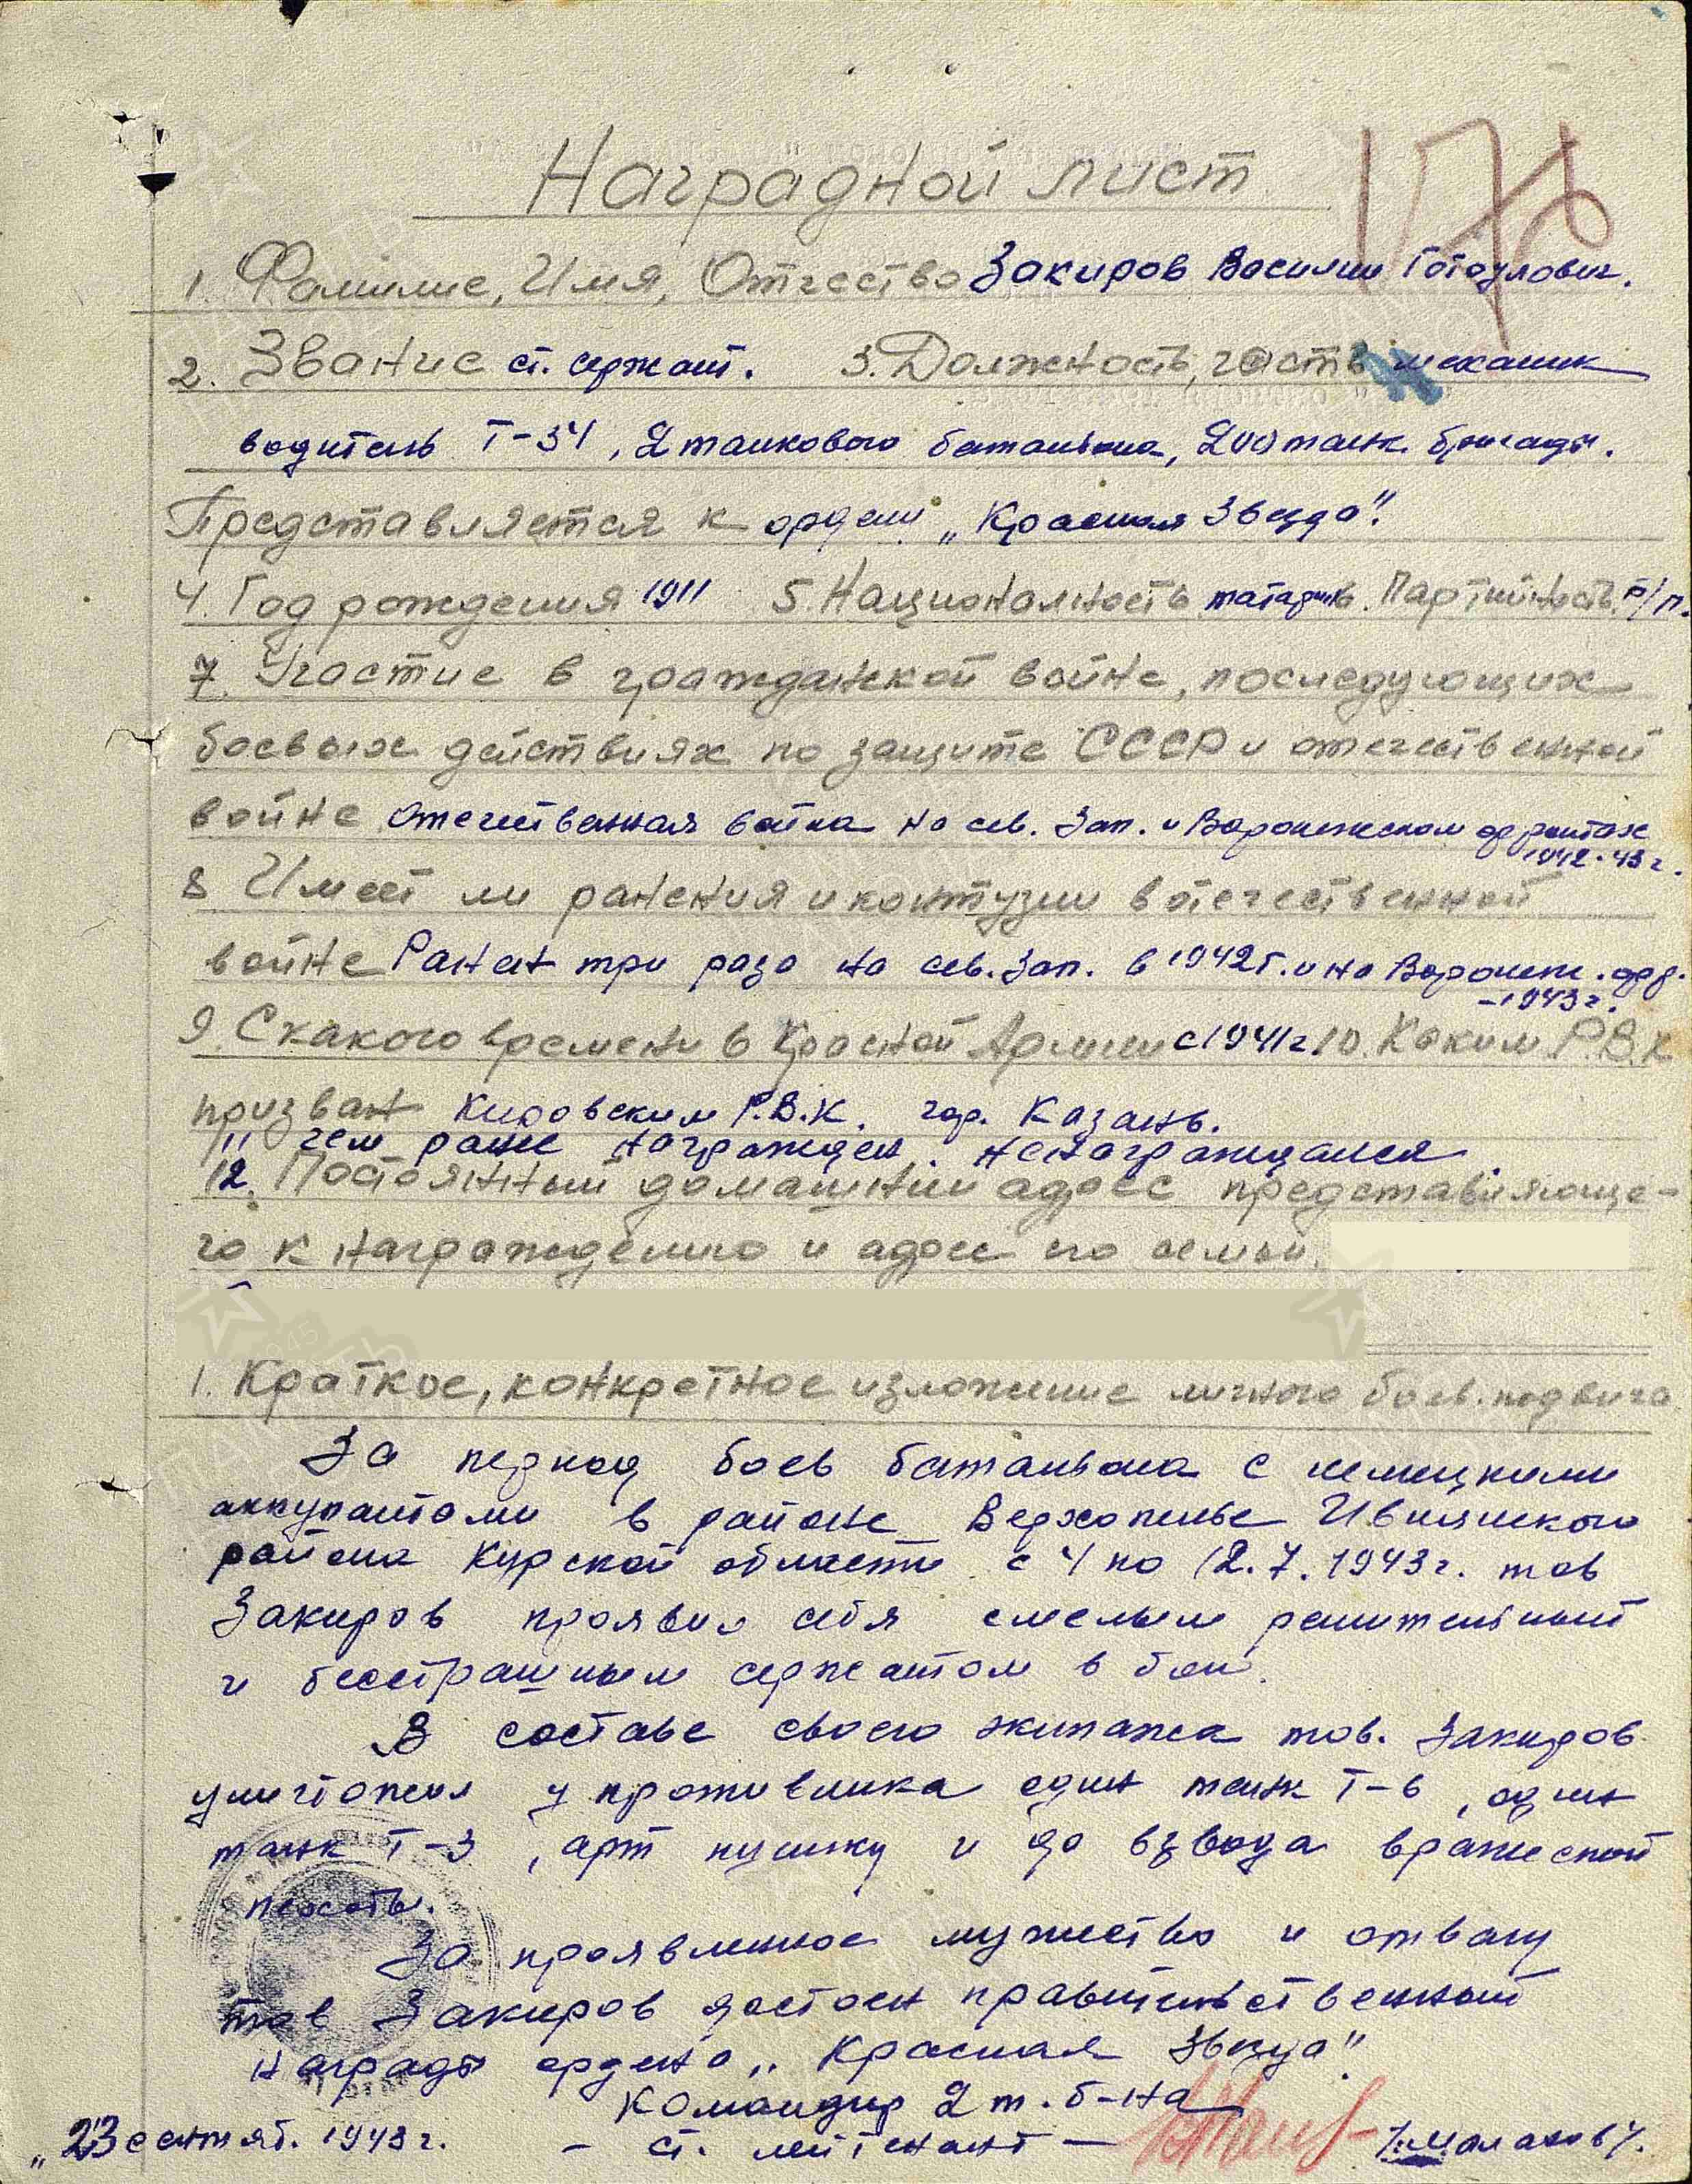 176
Наградной лист
1. Фамилие, Имя, Отчество Закиров Василий
2. Звание ст. сержант. 3. Должность, часть механик
водитель Т-34, 2 танкового батальона, 200 танк. бригады.
Представляется к ордену „Красная Звезда".
4. Год рождения 1911 5. Национальность татарин 6. Партийность б/п.
7. Участие в гражданской войне, последующих
боевых действиях по защите СССР и отечественной
войне Отечественная война на сев. Зап. и Воронежском фронтах
1942-43 г.
8 Имеет ли ранения и контузии в отечественной
войне Ранен три раза на сев. Зап. в 1942 г. и на Воронеж. фр.
-1943 г.
9. С какого времени в Красной Армии с 1941 г. 10. Каким Р.В.К
призван Кировским Р.В.К. гор. Казань.
11 чем ранее награжден. ненаграждался.
12. Постоянный домашний адрес представляюще-
го к награждению и адрес его семьи.
1. Краткое, конкретное изложение личного боев. подвига
За период боев батальона с немецкими
аккупантами в районе Верхопенье Ивнянского
района Курской области с 4 по 12.7.1943 г. тов
Закиров проявил себя смелым решительный
и бесстрашным сержантом в бою.
В составе своего экипажа тов. Закиров
уничтожил у противника один танк Т-6, один
танк Т-3, арт пушку и до взвода вражеской
пехоты.
За проявленное мужество и отвагу
тов Закиров достоен правительственный
награды ордена „Красная Звезда"
Командир 2 т. б-на
„23 сентяб. 1943 г. - ст. лейтенант - /Малахов/.